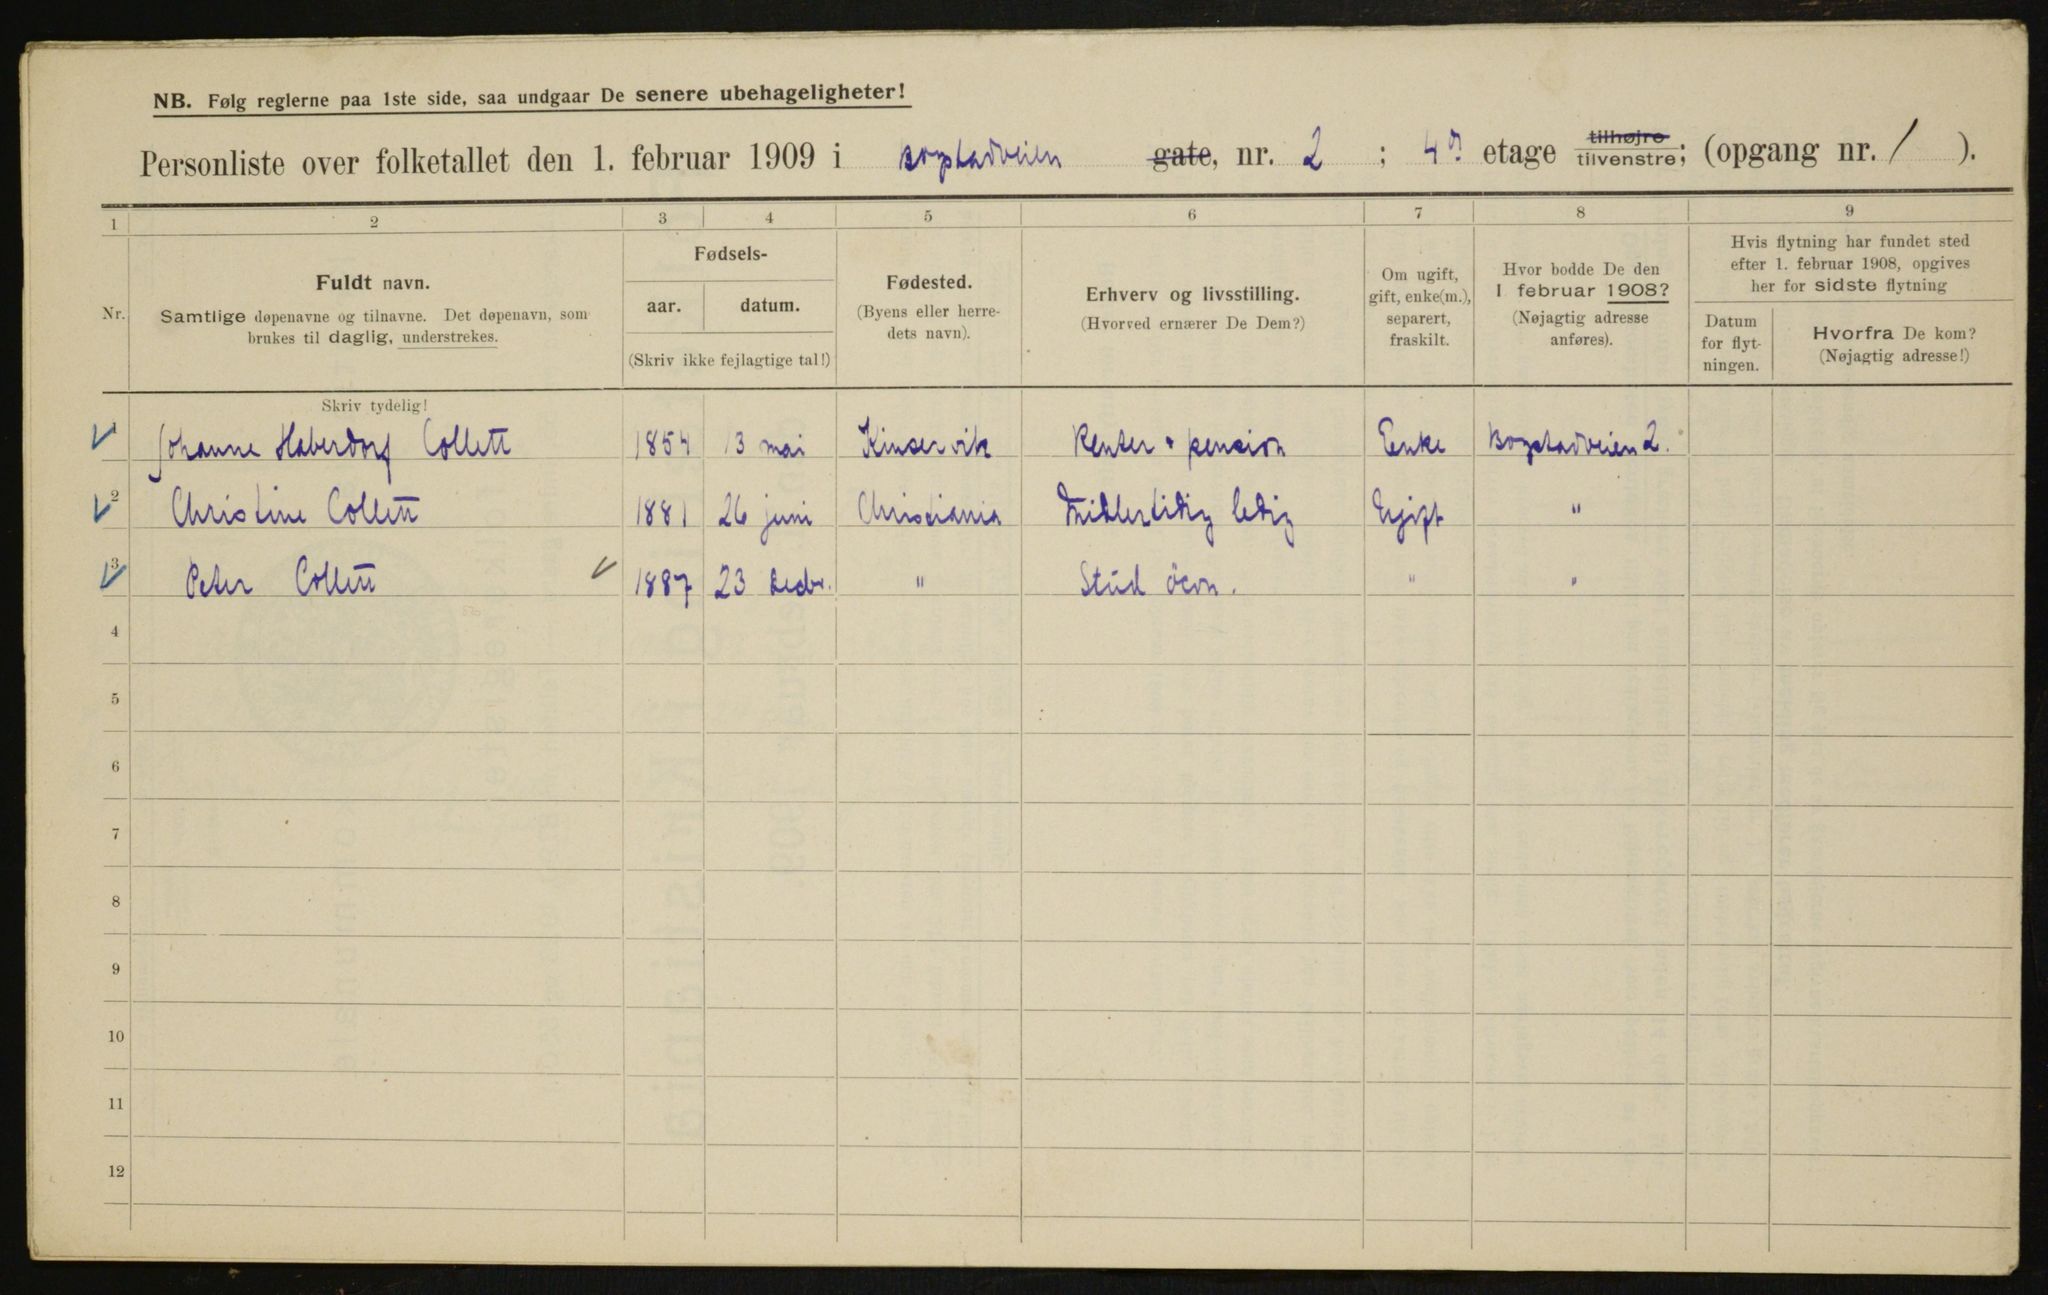 NB. Følg reglerne paa 1ste side, saa undgaar De senere ubehageligheter!
Personliste over folketallet den 1. februar 1909 i Bogstadveien gate, nr. 2 ; 4de etage tilhøjre tilvenstre; (opgang nr. 1 ).
1 2 3 4 5 6 7 8 9
Nr.
Fuldt navn.
Samtlige døpenavne og tilnavne. Det døpenavn, som
brukes til daglig, understrekes.
Fødsels-
aar. datum.
(Skriv ikke fejlagtige tal!)
Fødested.
(Byens eller herre-
dets navn).
Erhverv og livsstilling.
(Hvorved ernærer De Dem?)
Om ugift,
gift, enke(m.),
separert,
fraskilt.
Hvor bodde De den
1 februar 1908?
(Nøjagtig adresse
anføres).
Hvis flytning har fundet sted
efter 1. februar 1908, opgives
her for sidste flytning
Datum
for flyt-
ningen.
Hvorfra De kom?
(Nøjagtig adresse!)
Skriv tydelig!
1 Johanne Haberdorf Collett 1854 13 mai Kinservik Renter + pension Enke Bogstadveien 2.
2 Christine Collett 1881 26 juni Christiania Midlertidig ledig Ugift "
3 Peter Collett 1887 23 decbr. " Stud øcon. " "
4
5
6
7
8
9
10
11
12